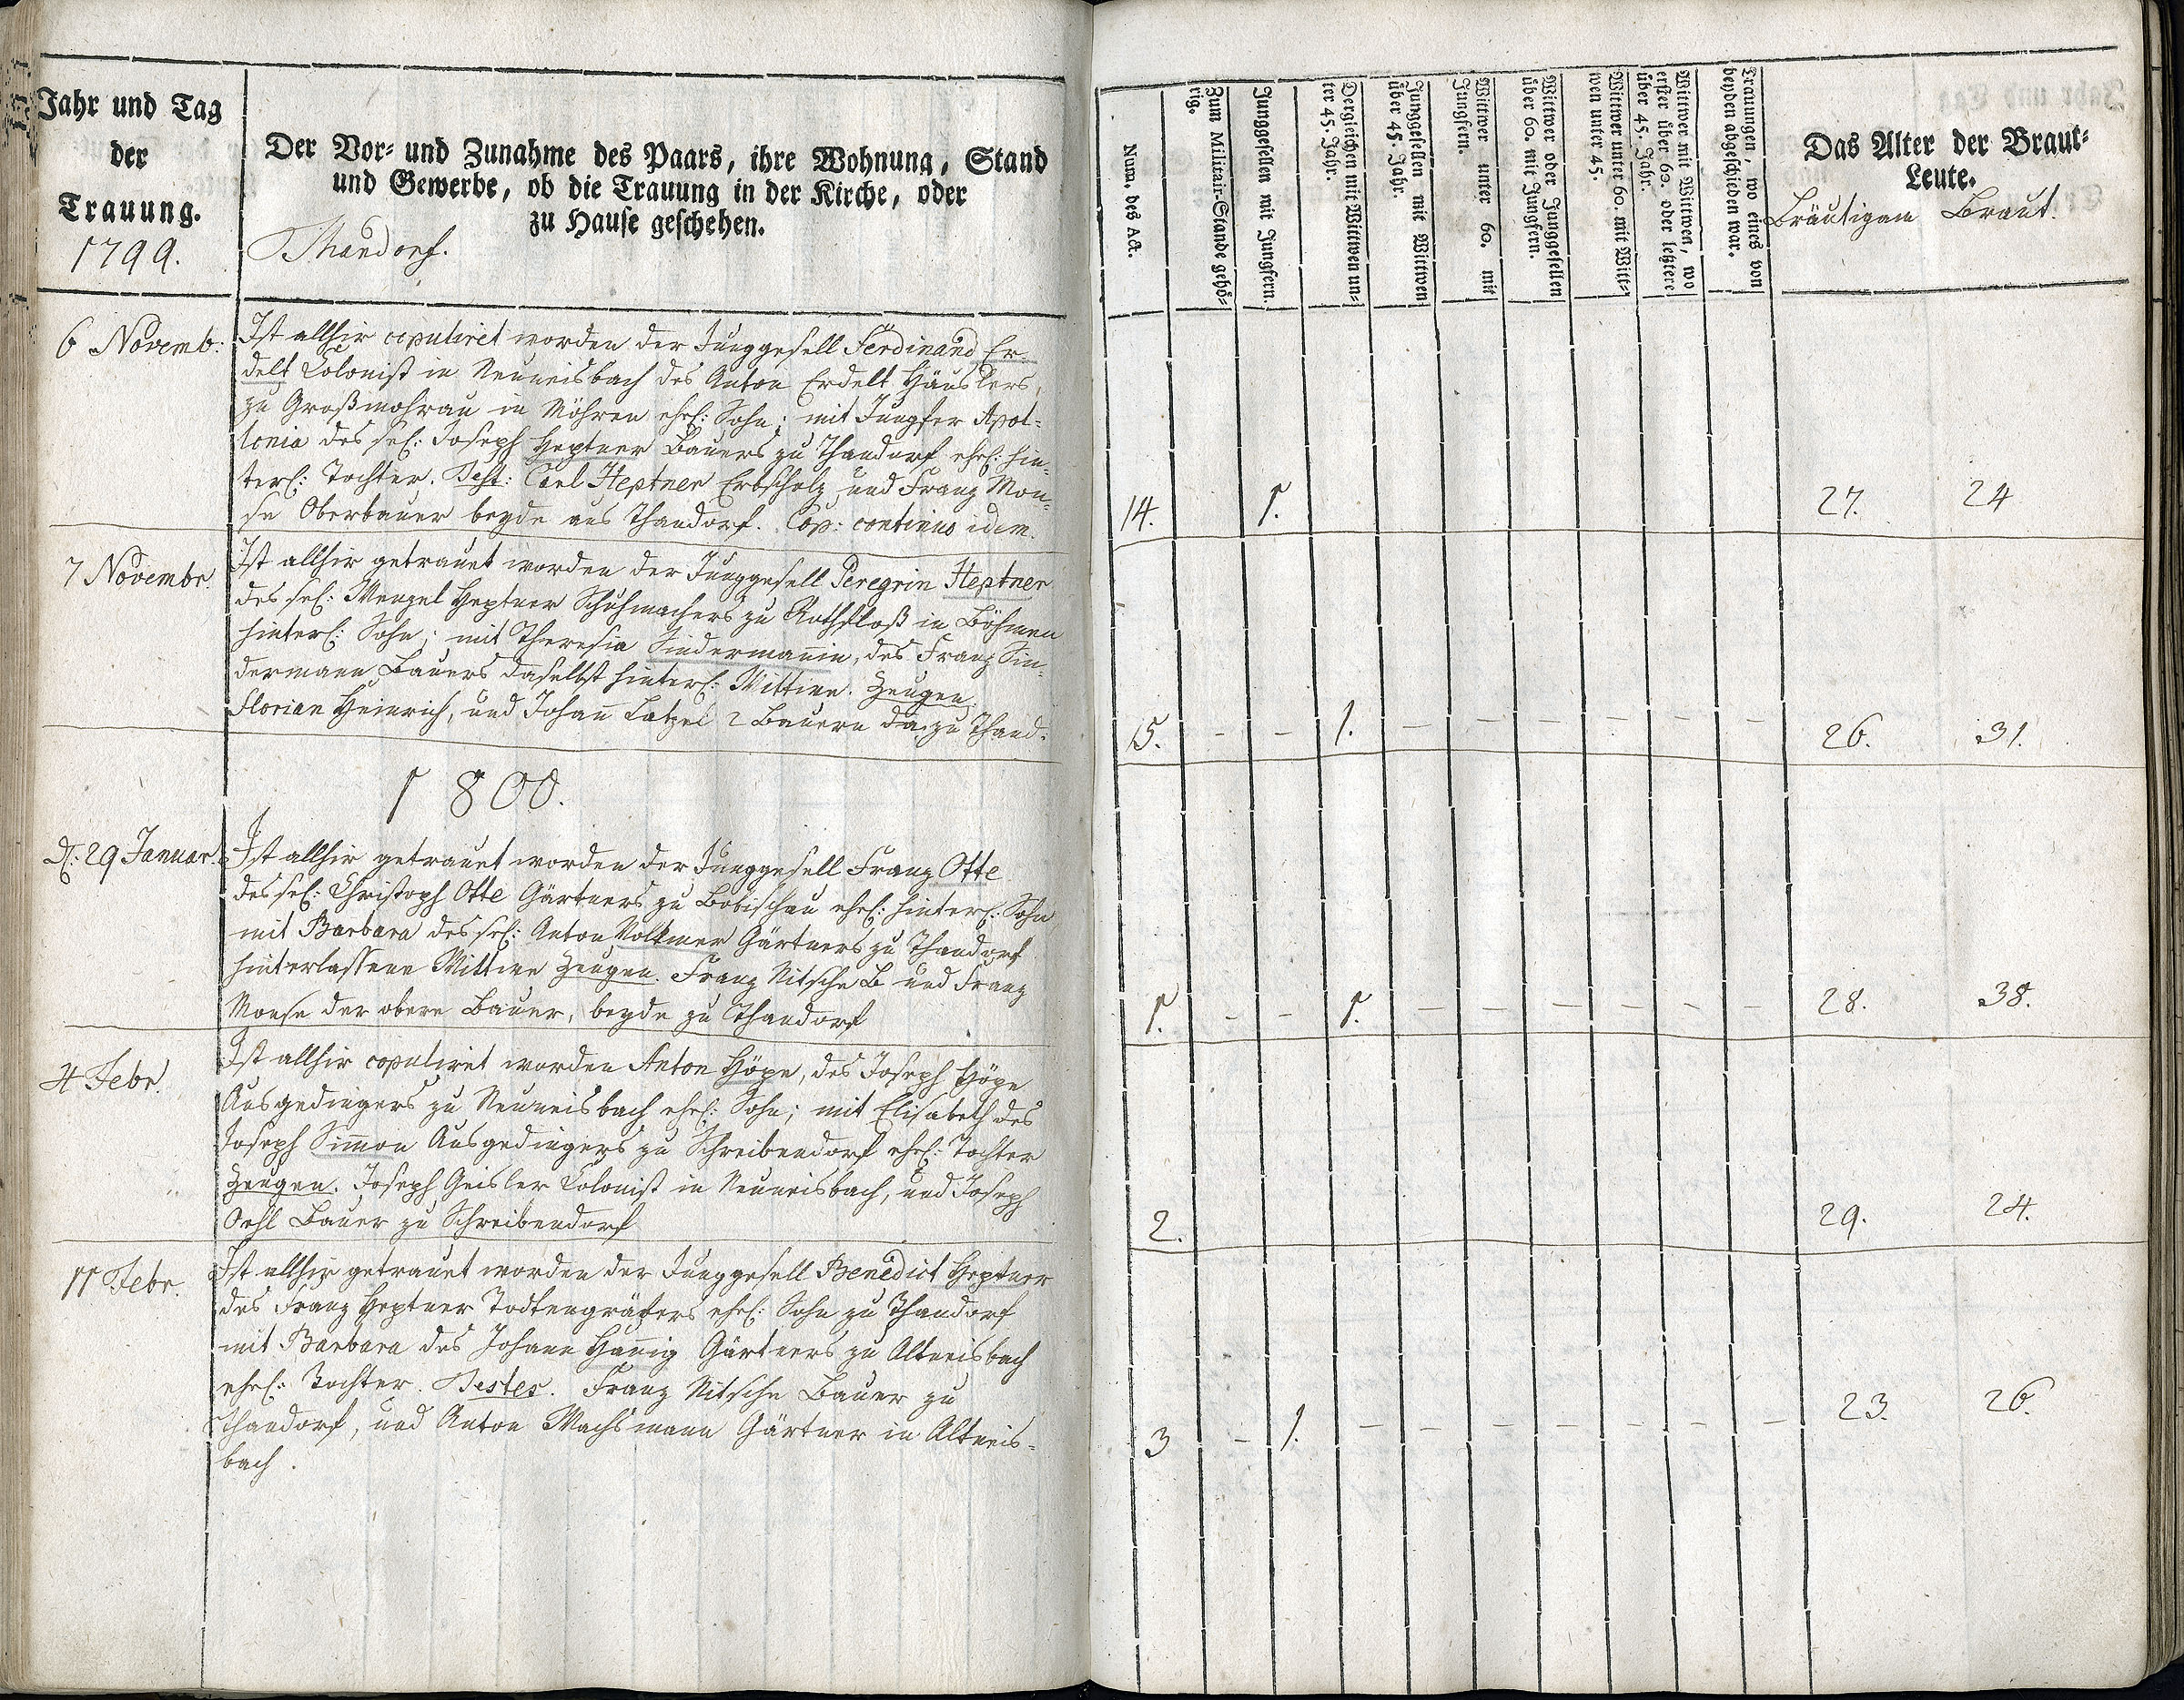 Jahr und Tag
der
Trauung.
1799.
Der Vor- und Zunahme des Paars, ihre Wohnung, Stand
und Gewerbe, ob die Trauung in der Kirche, oder
zu Hause geschehen.
Thandorf.
Num. des Act.
Zum Militair-Stande gehö-
rig.
Junggesellen mit Jungfern.
Dergleichen mit Wittwen un-
ter 45. Jahr.
Junggesellen mit Wittwen
über 45. Jahr.
Wittwer unter 60. mit
Jungfern.
Wittwer oder Junggesellen
über 60. mit Jungfern.
Wittwer unter 60. mit Witt-
wen unter 45.
Wittwer mit Wittwen, wo
erster über 60. oder letztere
über 45. Jahr.
Trauungen, wo eines von
beyden abgeschieden war.
Das Alter der Braut-
Leute.
Bräutigam Braut.
6 Novemb:
Ist allhir copuliret worden der Junggesell Ferdinand Er-
delt Colonist in Neuneisbach des Anton Erdelt Häuslers,
zu Großmohrau in Möhren ehel: Sohn; mit Jungfer Apol-
lonia des sel: Joseph Heptner Bauers zu Thandorf ehel: hin-
terl: Tochter. Test: Carl Heptner Erbscholz und Franz Mon-
se Oberbauer beyde aus Thandorf. Cop: continuo idem.
14. 1. 27. 24
7 Novembr.
Ist allhir getrauet worden der Junggesell Peregrin Heptner
des sel: Wenzel Heptner Schuhmachers zu Rothfloß in Böhmen
hinterl: Sohn; mit Theresia Sindermanin, des Franz Sin-
dermann Bauers daselbst hinterl: Wittwe. Zeugen.
Florian Heinrich, und Johan Latzel 2 Bauern da zu Thand.
15. - - 1. - - - - - - 26. 31.
1800.
d: 29 Januar.
Ist allhir getrauet worden der Junggesell Franz Otte
des sel: Christoph Otte Gärtners zu Bobischau ehel: hinterl: Sohn,
mit Barbara des sel: Anton Volkmer Gärtners zu Thandorf
hinterlassene Wittwe Zeugen. Franz Nitsche B und Franz
Monse der obere Bauer, beyde zu Thandorf
1. - - 1. - - - - - - 28. 38.
4 Febr.
Ist allhir copuliret worden Anton Höpe, des Joseph Höpe
Ausgedingers zu Neuneisbach ehel: Sohn; mit Elisabeth des
Joseph Simon Ausgedingers zu Schreibendorf ehel: Tochter
Zeugen. Joseph Geisler Colonist in Neuneisbach, und Joseph
Oehl Bauer zu Schreibendorf
2. 29. 24.
11 Febr.
Ist allhir getrauet worden der Junggesell Benedict Heptner
des Franz Heptner Todtengräbers ehel: Sohn zu Thandorf
mit Barbara des Johann Hanig Gärtners zu Altneisbach
ehel: Tochter. Testes. Franz Nitsche Bauer zu
Thandorf, und Anton Wachsmann Gärtner in Altneis-
bach.
3 - 1. - - - - - - - 23. 26.